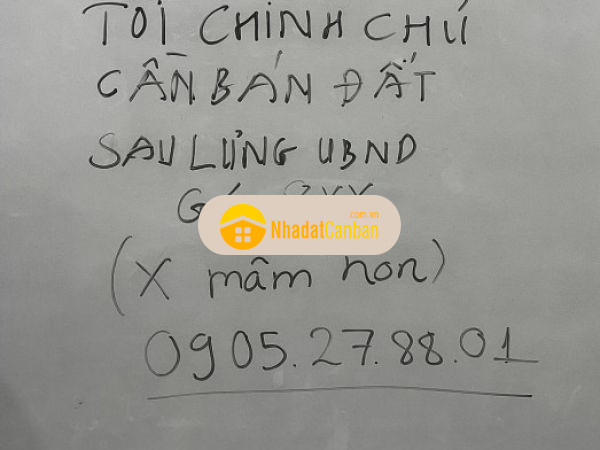 TÔI CHÍNH CHỦ
CẦN BÁN ĐẤT
SAU LƯNG UBND
.com.vn
NhadatCanban
(X mâm non)
0905.27.88.01